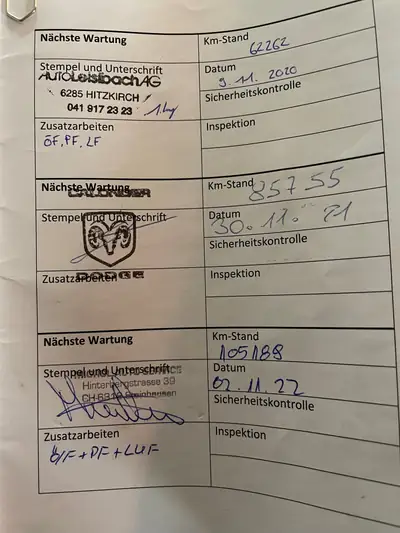 Nächste Wartung
Km-Stand
62262
Stempel und Unterschrift
AUTO Leisibach AG
6285 HITZKIRCH
041 917 23 23
Datum
9.11.2020
Sicherheitskontrolle
Zusatzarbeiten
ÖF, PF, LF
Inspektion
Nächste Wartung
Km-Stand
85755
Stempel und Unterschrift
DODGE
Datum
30.11.21
Sicherheitskontrolle
Zusatzarbeiten
Inspektion
Nächste Wartung
Km-Stand
105188
Stempel und Unterschrift
Hinterbergstrasse 39
Steinhausen
Datum
02.11.22
Sicherheitskontrolle
Zusatzarbeiten
Ö/F + PF + LUF
Inspektion